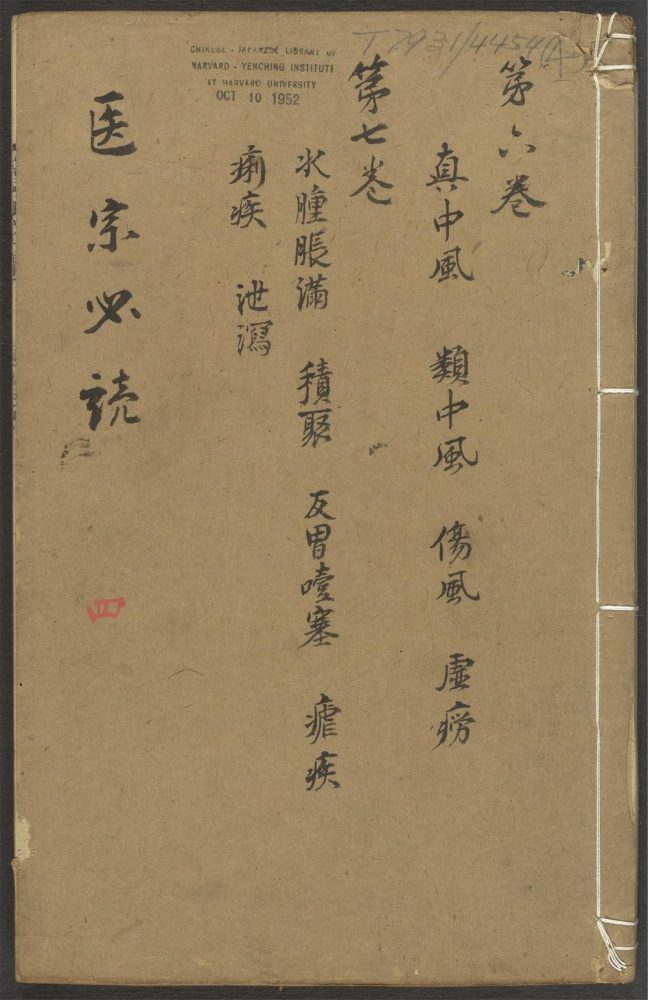 T 7931/4454(4)
CHINESE - JAPANESE LIBRARY OF
HARVARD - YENCHING INSTITUTE
AT HARVARD UNIVERSITY
OCT 10 1952
第六巻
真中風 類中風 傷風 虛癆
第七巻
水腫脹滿 積聚 反胃噎塞 瘧疾
痢疾 泄瀉
医宗必読
四